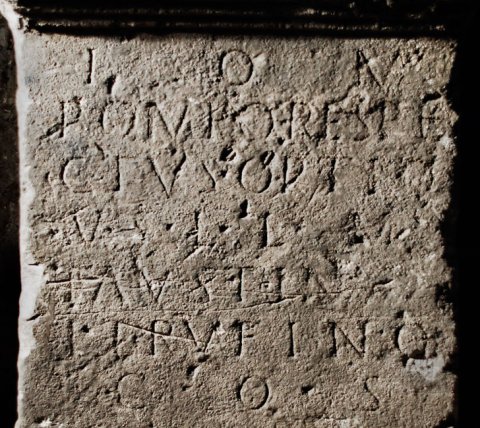 I O M
POMPO·RESPE
CTVS·OPTI
V S L L
FAVSTIN
ET RVFINO
C O S